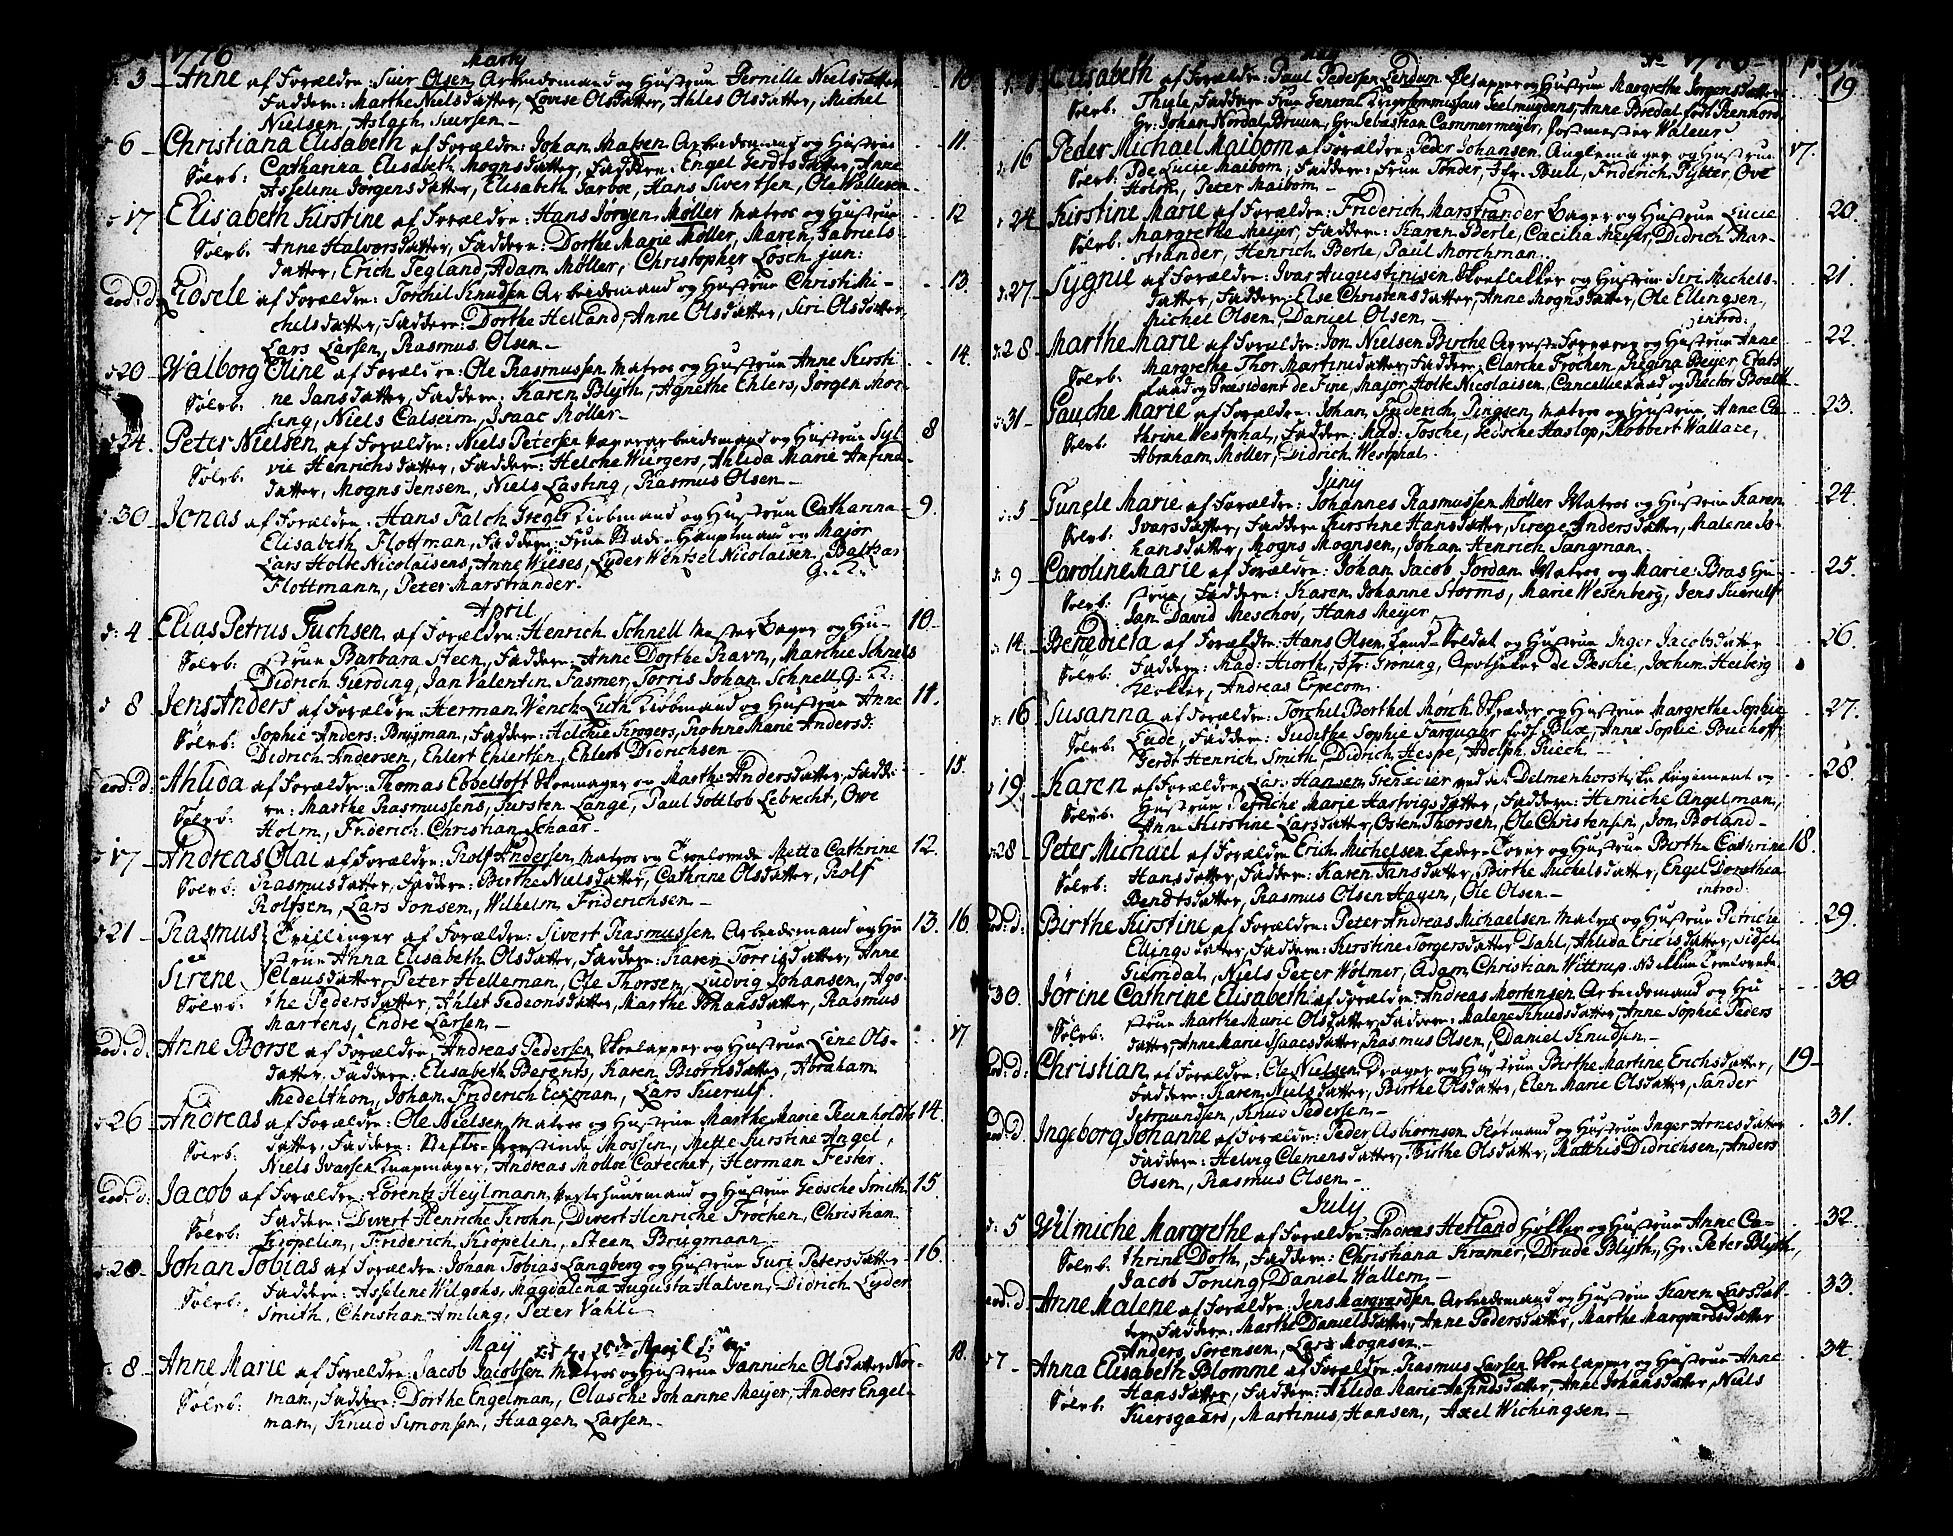 1776
Marty
d: 3 Anne af Forældre: Siver Olsen Arbeidsmand og Hustrue Pernille Nielsdatter 10
Faddere: Marthe Nielsdatter, Lovise Olsdatter, Ahles Olsdatter, Michel
Nielsen, Aslach Siversen
d 6 Christiana Elisabeth af Forældre: Johan Madsen Arbeidsmand og Hustrue 11.
Sølvb: Catharina Elisabeth Mognsdatter, Faddere: Engel Gerdtsdatter, Anne
Asseline Jørgensdatter, Elisabeth Garboe, Hans Sivertsen, Ole Wallesen
d 17 Elisabeth Kirstine af Forældre: Hans Jørgen Møller Matros og Hustrue 12
Sølvb. Anne Halvorsdatter, Faddere: Dorthe Marie Møller, Maren Gabriels-
datter, Erich Tegland, Adam Møller, Christopher Losch jun:
eod: d: Gidsele af Forældre: Torchil Knudsen Arbeidsmand og Hustrue Christi Mi- 13.
chelsdatter, Faddere: Dorthe Helland, Anne Olsdatter, Siri Olsdatter,
Lars Larsen, Rasmus Olsen
d 20 Walborg Oline af Forældre: Ole Rasmussen Matros og Hustrue Anne Kirsti- 14.
Sølvb: ne Jansdatter, Faddere: Karen Blyth, Agnethe Ehlers, Jørgen Mor-
seng, Niels Calseim, Isaac Møller
d 24. Peter Nielsen af Forældre: Niels Petersen arbeidsmand og Hustrue Syl- 8
Sølvb: vie Henrichsdatter, Faddere: Helche Würgers, Ahlida Marie Anfinds-
datter, Mogns Jensen, Niels Lasting, Rasmus Olsen
d 30 Jonas af Forældre: Hans Falch Greger Kiøbmand og Hustrue Catharina 9.
Elisabeth Flottman, Faddere: Frue Stads-Hauptmand og Major
Lars Holte Nicolaisens, Anne Wieses, Lyder Wentzel Nicolaisen, Baltzar
Flottmann, Peter Marstrander. G. K.
April
d: 4 Elias Petrus Fuchsen af Forældre: Henrich Schnell Mester Bager og Hu- 10
Sølvb. strue Barbara Steen, Faddere: Anne Dorthe Ravn, Marchie Schnels
Didrich Gierding, Jan Valentin Fasmer, Jorris Johan Schnell G: K:
d 8 Jens Anders af Forældre: Herman Wench Luth Kiøbmand og Hustrue Anne 11.
Sølvb: Sophie Anders: Brugman, Faddere: Helchie Krogers, Robine Marie Andersd:
Didrich Andersen, Ehlert Ehlertsen, Ehlert Didrichsen
eod: d: Ahlida af Forældre: Thomas Ebbeltoft Skomager og Marthe Andersdatter, Fadde- 15.
Sølvb: re: Marthe Rasmussens, Tursten Lange, Paul Gottlob Lebrecht, Ove
Holm, Friderich Christian Schaar
d 17 Andreas Olai af Forældre: Rolf Andersen Matros og Trolovede Metta Cathrine 12.
Sølvb: Rasmusdatter, Faddere: Birthe Nielsdatter, Cathrine Olsdatter, Rolf
Rolfsen, Lars Jonsen, Wilhelm Friderichsen
d 21 Rasmus Tvillinger af Forældre: Sivert Rasmussen Arbeidsmand og Hu- 13. 16
strue Anna Elisabeth Olsdatter, Faddere: Karen Torrisdatter, Anne
Sirene Clausdatter, Peter Helleman, Ole Thorsen, Ludvig Johansen, Ago-
Sølvb: the Pedersdatter, Ahlet Gedeonsdatter, Marthe Johansdatter, Rasmus
Martens, Endre Larsen
eod: d: Anne Borse af Forældre: Andreas Pedersen Skoelapper og Hustrue Line Ols- 17
datter, Faddere: Elisabeth Berents, Karen Biørnsdatter, Abraham
Medelthon, Johan Friderich Eckman, Lars Suerulf.
d 26 Andreas af Forældre: Ole Nielsen Matros og Hustrue Marthe Marie Reinholds- 14.
Sølvb: datter, Faddere: Stifts-Provstinde Mossin, Mette Kirstine Angel,
Niels Ivarsen Knapmager, Andreas Moltoe Catechet, Herman Fester.
eod: d: Jacob af Forældre: Lorentz Heylmann Vertshuusmand og Hustrue Gedsche Smith 15.
Sølvb: Faddere: Divert Henriche Krohn, Divert Henriche Frochen, Christian
Krøpelin, Friderich Krøpelin, Steen Brugmann
d 28 Johan Tobias af Forældre: Johan Tobias Langberg og Hustrue Guri Petersdatter 16.
Sølvb. Faddere: Asselene Wilgohs, Magdalena Augusta Halven, Didrich Lyder
Smith, Christian Amling, Peter Vahle
May
d: 8 Anne Marie af Forældre: Jacob Jacobsen Matros og Hustrue Janniche Olsdatter Nor- 18.
Sølvb: man, Faddere: Dorthe Engelman, Clasche Johanne Meyer, Anders Engel-
man, Knud Simonsen, Haagen Larsen

Elisabeth af Forældre: Paul Pedersen Lendum og Hustrue Margrethe Jørgensdatter 19
Sølvb. Thule, Faddere: Frue General Krigscommissair Seelmugdens, Anne Bredal fød Rennord,
Hr: Johan Nordal Bruun, Hr: Sebastian Cammermeyer, Postmester Valeur
d: 16 Peder Michael Maibom af Forældre: Peder Johansen Anglemager og Hustrue 17.
Sølvb: Ide Lucie Maibom, Faddere: Frue Tønder, Jfr. Bull, Friderich Pytter, Ove
Holm, Peter Maibom
d 24 Kirstine Marie af Forældre: Friderich Marstrander Bager og Hustrue Lucie 20.
Sølvb. Margrethe Meyer, Faddere: Karen Berle, Cacilia Meyer, Didrich Mar-
strander, Henrich Berle, Paul Morchman.
d: 27 Sygnil af Forældre: Ivar Augustinusen Skoeflikker og Hustrue Siri Michels- 21.
datter, Faddere: Else Christensdatter, Anne Mognsdatter, Ole Ellingsen,
Michel Olsen, Daniel Olsen
introd:
d: 28 Marthe Marie af Forældre: Jon Nielsen Birche Arrestforvarer og Hustrue Anne 22.
Sølvb: Margrethe Thor Martinsdatter, Faddere: Clarche Frochen, Regina Beyer, Etats
raad og Præsident de Fine, Major Holte Nicolaisen, Cancellieraad og Rector Boalth
d: 31 Gauche Marie af Forældre: Johan Friderich Pingsen Matros og Hustrue Anne Ca- 23.
Sølvb. thrine Westphal, Faddere: Mad: Tosche, Gedsche Haslop, Robbert Wallace,
Abraham Møller, Didrich Westphal.
Juny
d: 5 Gungle Marie af Forældre: Johannes Rasmussen Møller Matros og Hustrue Karen 24.
Sølvb: Ivarsdatter, Faddere: Kirstine Hansdatter, Sirene Andersdatter, Malene Jo-
hansdatter, Mogns Mognsen, Johan Henrich Jangman.
d: 9 Caroline Marie af Forældre: Johan Jacob Jordan Matros og Marie Bras Hu- 25.
Sølvb: strue, Faddere: Karen Johanne Storms, Marie Wesenberg, Jens Suerulf
Jan David Meschov, Hans Meyer
d: 14 Benedicta af Forældre: Hans Olsen Land-Soldat og Hustrue Inger Jacobsdatter 26.
Sølvb: Faddere: Mad: Hiorth, Jfr: Groning, Apotheker de Besche, Jochim Heiberg
Klokker, Andreas Especom.
d: 16 Susanna af Forældre: Torchil Berthel Mørch Skræder og Hustrue Margrethe Sophie 27.
Sølvb: Lude, Faddere: Judithe Sophie Farquahr fød Blix, Anne Sophie Buchoff,
Gerdt Henrich Smith, Didrich Hespe, Adolph Riech
d 19 Karen af Forældre: Lars Hansen Grenadeer ved det Delmenhorstiske Regiment og 28.
Sølvb. Hustrue Petriche Marie Hartvigsdatter, Faddere: Hemiche Angelman,
Anne Kirstine Larsdatter, Osten Thorsen, Ole Christensen, Jon Boland
d: 28 Peter Michael af Forældre: Erich Michelsen Lœder-Tover og Hustrue Birthe Cathrine 18.
Sølvb: Hansdatter, Faddere: Karen Jansdatter, Birthe Michelsdatter, Engel Dorothea
Bendtsdatter, Rasmus Olsen Hagen, Ole Olsen
introd:
eod: d: Birthe Kirstine af Forældre: Peter Andreas Michaelsen Matros og Hustrue Petricha 29.
Ellingsdatter, Faddere: Kirstine Torgersdatter Dahl, Ahlida Ericisdatter, Sidsel
Giemdal, Niels Peter Wolmer, Adam Christian Wittrup.
d 30. Jørine Cathrine Elisabeth af Forældre: Andreas Mortensen Arbeidsmand og Hu- 30
Sølvb: strue Marthe Marie Olsdatter, Faddere: Malene Knudsdatter, Anne Sophie Peders
datter, Anne Marie Isaacsdatter, Rasmus Olsen, Daniel Knudsen
eod: d: Christian af Forældre: Ole Nielsen Drager og Hustrue Birthe Martine Erichsdatter, 19
Faddere: Karen Nielsdatter, Birthe Olsdatter, Elen Marie Olsdatter, Sander
Setmundsen, Knud Pedersen
eod: d. Ingeborg Johanne af Forældre: Peder Asbiørnsen Fløtmand og Hustrue Inger Arnesdatter 31.
Faddere: Helvig Clemensdatter, Birthe Olsdatter, Matthis Didrichsen, Anders
Olsen, Rasmus Olsen
July
d: 5 Wilmiche Margrethe af Forældre: Andreas Hetland Høkker og Hustrue Anne Ca- 32.
Sølvb. thrine Doth, Faddere: Christiana Kramer, Drude Blyth, Hr: Peter Blyth,
Jacob Toning, Daniel Wallem
eod: d. Anne Malene af Forældre: Jens Marqvardsen Arbeidsmand og Hustrue Karen Larsdat- 33.
ter, Faddere: Marthe Danielsdatter, Anne Pedersdatter, Marthe Marqvardsdatter
Anders Sørensen, Lars Mognsen
d 7 Anna Elisabeth Blomme af Forældre: Rasmus Larsen Skoelapper og Hustrue Anne 34.
Sølvb. Hansdatter, Faddere: Ahlida Marie Anfindsdatter, Anne Johansdatter, Niels
Kiersgaard, Martinus Hansen, Axel Wichingsen